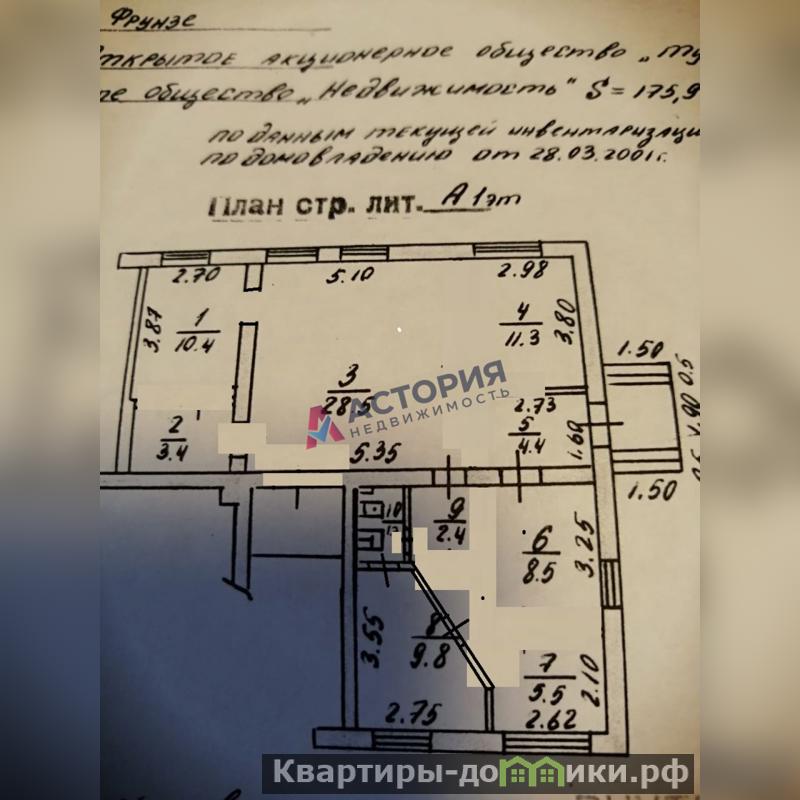 Фрунзе
Открытое акционерное общество „Ту
ое общество „Недвижимость“ S = 175,9
по данным текущей инвентаризаци
по домовладению от 28.03.2001г.
План стр. лит. А 1эт
2.70 5.10 2.98
3.87 1 10.4 4 11.3 3.80
1.50
3 28.5
АСТОРИЯ
НЕДВИЖИМОСТЬ
2 3.4 5.35 2.73 5 4.4 1.60 0.5
1.50
10 9 2.4 6 8.5 3.25
3.55 8 9.8 7 5.5 2.10
2.75 2.62
Квартиры-домики.рф